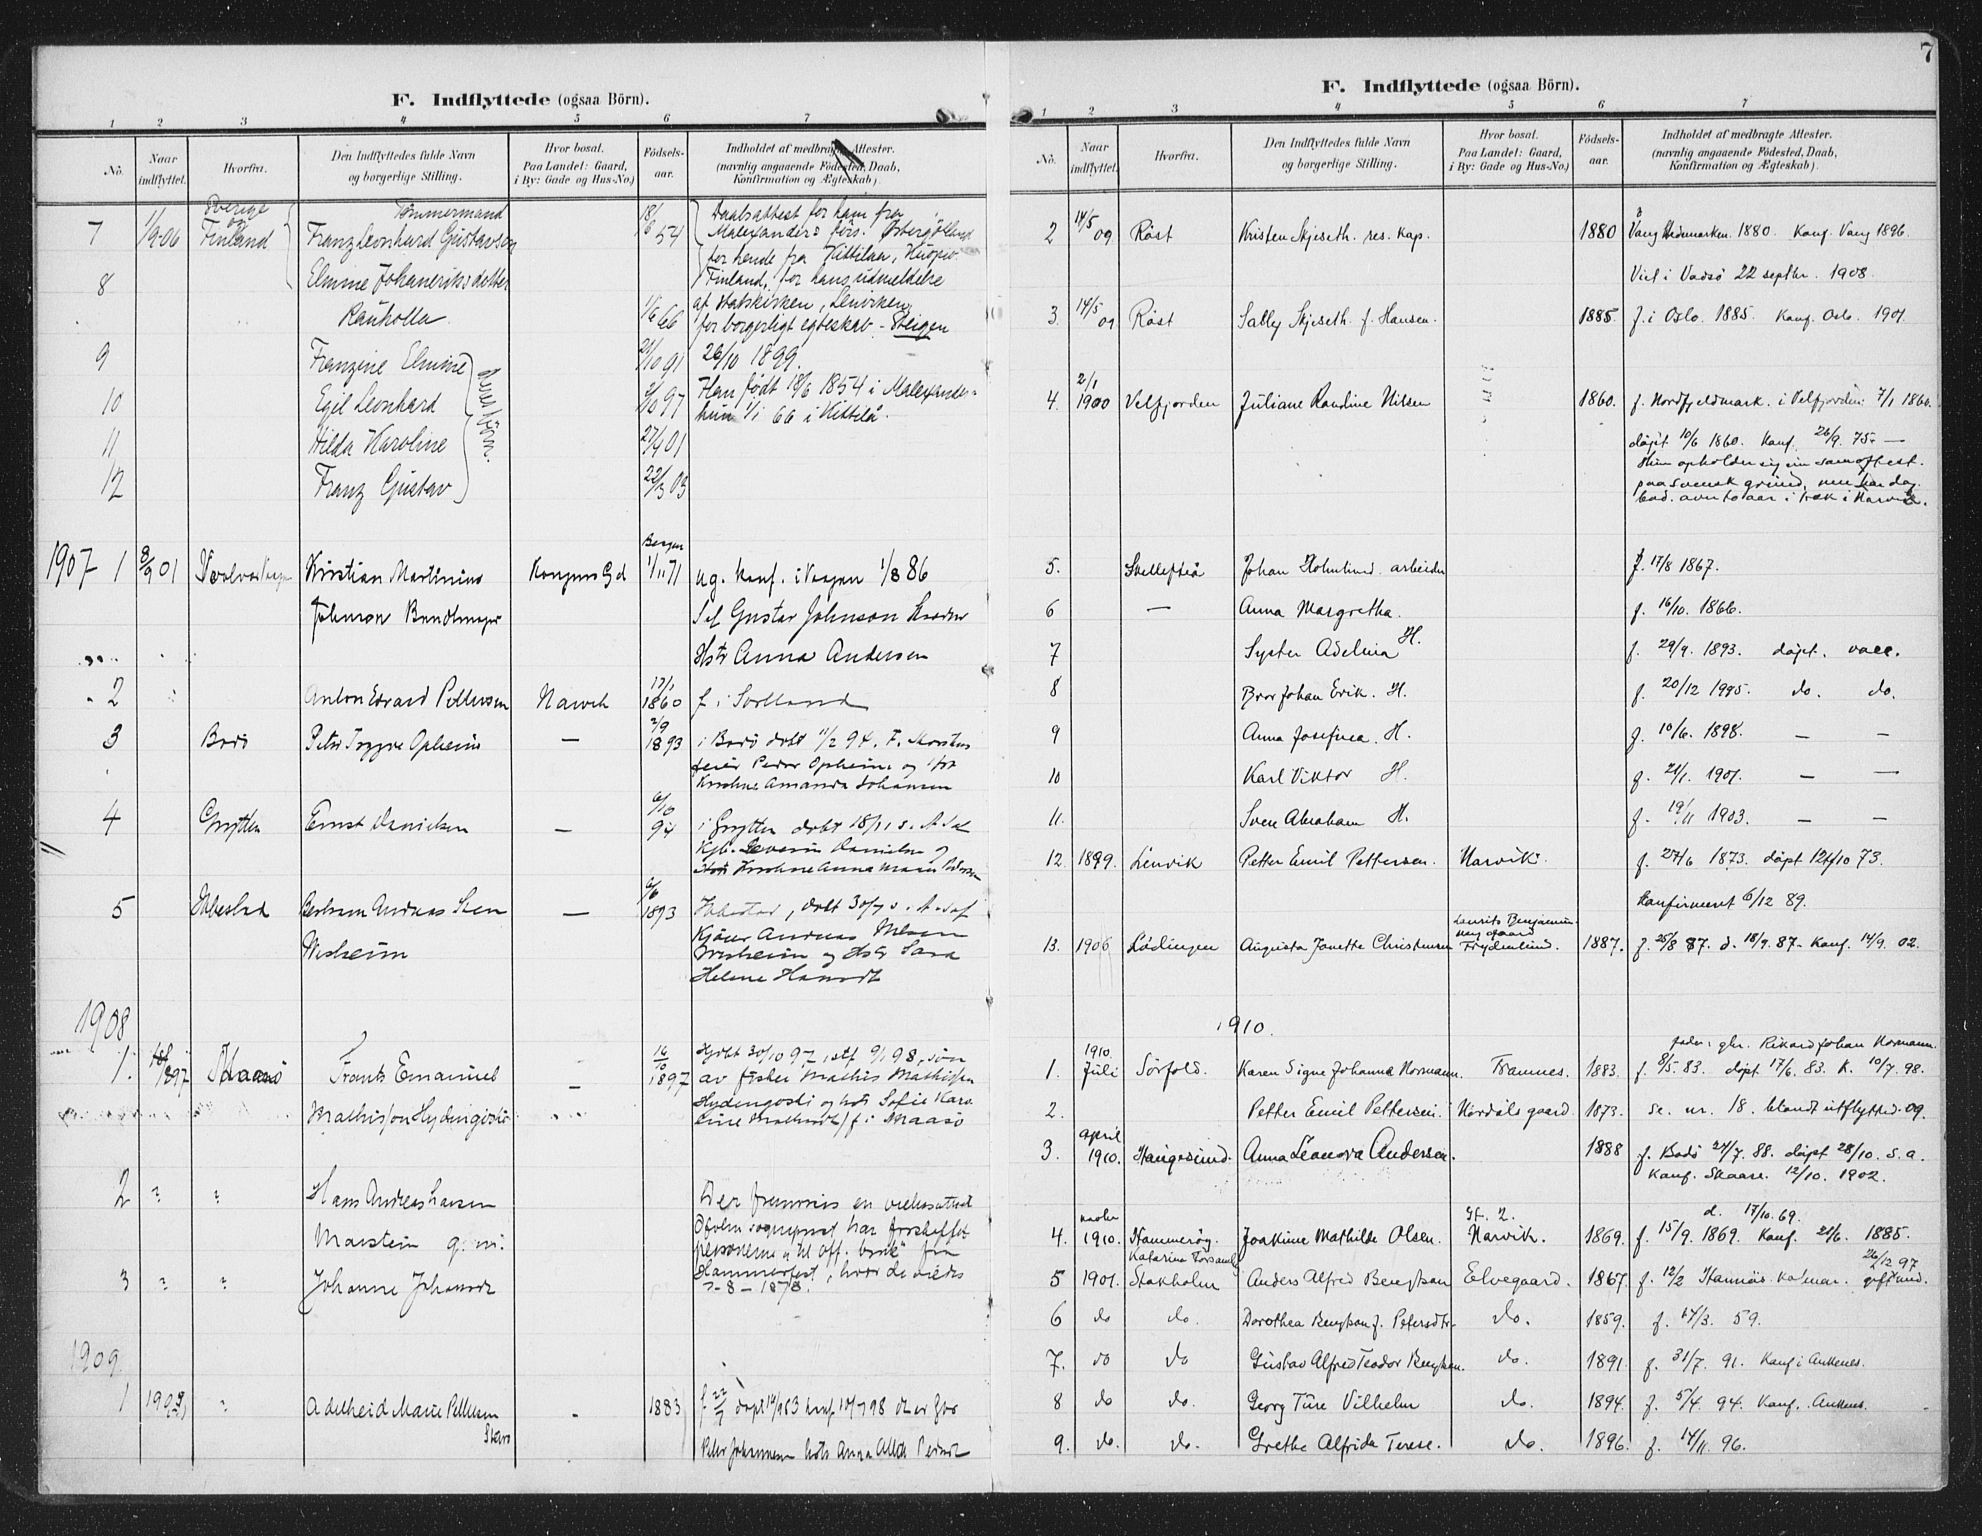 7
F. Indflyttede (ogsaa Börn).
1 2 3 4 5 6 7
No.
Naar indflyttet.
Hvorfra.
Den Indflyttedes fulde Navn
og borgerlige Stilling.
Hvor bosat.
Paa Landet: Gaard,
i By: Gade og Hus-No.)
Födsels-
aar.
Indholdet af medbragte Attester.
(navnlig angaaende Födested, Daab,
Konfirmation og Ægteskab).
Sverige og Finland
Tömmermand
7 1/9-06 Franz Leonhard Gustavson 18/6 54
Daabsattest for ham fra
Malexanders förs. Østergötland
for hende fra Kittilaa, Kuopio
8 Elmine Johaneriksdotter
Finland, for hans udmeldelse
Rauholla 1/6 66
af statskirken, Lenviken
for borgerligt egteskab - Steigen
9 Franzine Elmine 21/10 91
26/10 1899.
10 Egil Leonhard 97
Han født 18/6 1854 i Malexander
hun 1/1 66 i Kittilå.
11 Hilda Karoline 27/4 01
12 Franz Gustav 22/3 03
deres börn.
1907 1 8/9 01 Kristian Martinius Kongens Gd Bergen 1/11 71 ug. konf. i Vaagen 1/8 86
Johnson Brandtmayer Sef Gustav Johnson
Hstr Anna Andersen
2 Anton Edvard Pettersen Narvik 17/1 1860 f. i Sortland
3 Bodö Petter Trygve Opheim — 2/9 1893 i Bodö döbt 11/2 94. F. Skorstens
feier Peder Opheim og Hst
Amanda Johansen
4 Grytten Ernst Danielsen — 6/10 94 i Grytten döbt 18/11 s. A. Sef
Severin Danielsen og
Anna
5 Ibbestad Andreas Sten — 6/6 1893 Ibbestad, döbt 30/7 s. A. Sef
Wisheim Andreas Nilsen
Wisheim og Hstr Sara
Helene Hansdt
1908
1. 1897 Maasö Frants Emanuel — 16/10 1897
Hjdbt 30/10 97, stf 9/1 98, søn
av fisker Mathis Mathisen
Mathisson Hydingosti
Hydengosti og hstr Sofie Karo
line Mathisdt / f. i Maasö
2 " " Hans Andreas Larsen
Marstein g. m.
Der fremvises en vielsesattest
Ofoten sogneprest har forskaffet
personerne "til off. bruk" fra
3 " " Johanne Johansdt
Hammerfest, hvor de viedes
7-8-1878.
1909
1 1909 " Adelheid Marie Pettersen - 1883 f 22/7 döpt 14/9 83 konf 10/7 98
Peter Johannesen hstr Anna
F. Indflyttede (ogsaa Börn).
1 2 3 4 5 6 7
No.
Naar indflyttet.
Hvorfra.
Den Indflyttedes fulde Navn
og borgerlige Stilling.
Hvor bosat.
Paa Landet: Gaard,
i By: Gade og Hus-No.)
Födsels-
aar.
Indholdet af medbragte Attester.
(navnlig angaaende Födested, Daab,
Konfirmation og Ægteskab).
2 14/5 09 Röst Kristen Skjeseth. res. kap. 1880 Vang Hedmarken. 1880. Konf. Vang 1896.
Viet i Vadsö 22 septbr. 1908.
3. 14/5 09 Röst Sally Skjeseth f. Hansen. 1885. f. i Oslo. 1885. Konf. Oslo. 1901.
4. 2/1 1900 Velfjorden Juliane Randine Nilsen 1860. f. Nordfjeldmark. i Velfjorden 7/1 1860.
döpt 10/6 1860. Konf. 26/9. 75. —
Hun opholder sig som oftest
paa svensk grund, men har dog
bod. over to aar i træk i Narvik.
5. Skellefteå Johan Holmlund. arbeider f. 17/8 1867.
6 — Anna Margretha. f. 16/10. 1866.
7 Syster Adelina H. f. 29/9. 1893. döpt. vacc.
8 Bror Johan Erik. H. f. 20/12 1995. do. do.
9 Anna Josefina. H. f. 10/6. 1898. — —
10 Karl Viktor H. f. 21/1. 1901. — —
11. Sven Abraham H. f. 19/11 1903. — —
12. 1899. Lenvik Petter Emil Pettersen. Narvik. f. 27/6 1873. döpt 12/10 73.
Konfirmeret 6/12 89.
Laurits Benjamin-
13. 1906 Lödingen Augusta Jonette Christensen Frydenlund. 1887. f. 25/8 87. d. 18/9. 87. Konf. 14/9. 02.
1910.
fader: gbr. Rikard Johan Normann.
1. 1910. Juli Sörfold. Karen Signe Johanna Normann. Framnes. 1883. f. 8/5. 83. döpt 17/6. 83. K. 10/7. 98.
2. Petter Emil Pettersen. Nordalsgaard. 1873. se. nr. 18. blandt utflytted. 09.
3. april 1910. Haugesund. Anna Leonora Andersen. 1888 f. Bodö 24/7. 88. döpt 28/10. s. a.
Konf. Skaare. 12/10. 1902.
d. 17/10. 69.
4. 1910. Hammeröy. Joakime Mathilde Olsen. Narvik. 1869. f. 15/9. 1869. Konf. 21/6. 1885.
5 1901. Katarina Forsamling Stokholm Anders Alfred Bengtson Elvegaard. 1867. f. 12/2 Hannäs. Kalmar. 26/12 97
6 do do. Dorothea Bengtson f. Petersdtr. do. 1859. f. 17/3. 59.
7. do do Gustav Alfred Teodor Bengtson. do. 1891. f. 31/7. 91. Konf i Ankenes.
8 do do. Georg Ture Vilhelm do. 1894. f. 5/4. 94. Konf. Ankenes.
9. do. do. Grethe Alfrida Terese. do. 1896. f. 14/11. 96.